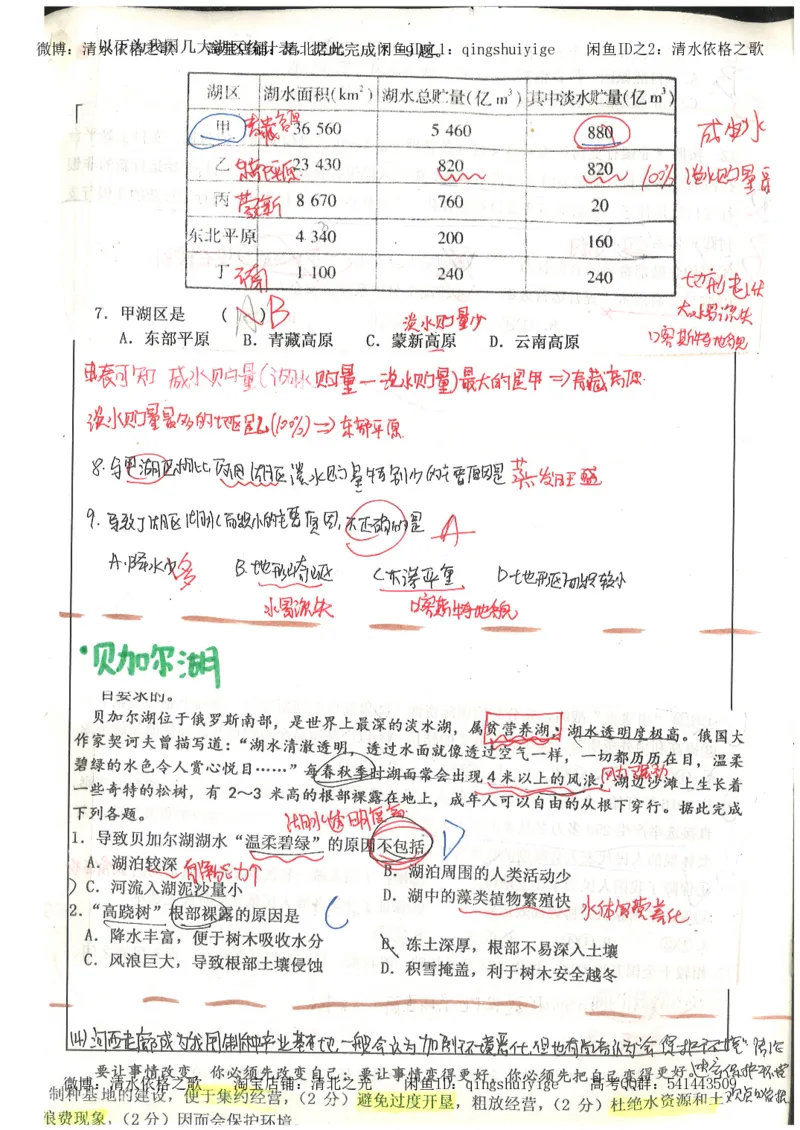 以下为我国几大湖区统计表，据此完成7～9题。
微博：清水依格之歌 淘宝店铺：清北之光 闲鱼ID之1：qingshuiyige 闲鱼ID之2：清水依格之歌
湖区 湖水面积(km²) 湖水总贮量(亿 m³) 其中淡水贮量(亿 m³)
甲 青藏高原 36 560 5 460 880 咸的水
乙 东部平原 23 430 820 820 100% 淡水贮量高
丙 蒙新 8 670 760 20
东北平原 4 340 200 160
丁 云南 1 100 240 240
地形起伏
水易流失
喀斯特地貌
7．甲湖区是 （ ） B
淡水贮量少
A．东部平原 B．青藏高原 C．蒙新高原 D．云南高原
由表可知 咸水贮量(湖水贮量—淡水贮量)最大的是甲⇒青藏高原
淡水贮量最多的地区是乙(100%)⇒东部平原
8.与甲湖区相比丙湖区淡水贮量特别少的主要原因是 蒸发旺盛
9.导致丁湖区湖水面积小的主要原因,不正确的是 A
A.降水多 B.地形崎岖 C.水渗严重 D.地形区面积较小
水易流失 喀斯特地貌
·贝加尔湖
目要求的。
贝加尔湖位于俄罗斯南部，是世界上最深的淡水湖，属贫营养湖；湖水透明度极高。俄国大
作家契诃夫曾描写道：“湖水清澈透明，透过水面就像透过空气一样，一切都历历在目，温柔
碧绿的水色令人赏心悦目……”每春秋季时湖面常会出现 4 米以上的风浪，湖边沙滩上生长着
一些奇特的松树，有 2～3 米高的根部裸露在地上，成年人可以自由的从根下穿行。据此完成
下列各题。
湖水透明度高
1．导致贝加尔湖湖水“温柔碧绿”的原因不包括 D
A．湖泊较深 自净能力个 B．湖泊周围的人类活动少
C．河流入湖泥沙量小 D．湖中的藻类植物繁殖快 水体富营养化
2．“高跷树”根部裸露的原因是 C
A．降水丰富，便于树木吸收水分 B．冻土深厚，根部不易深入土壤
C．风浪巨大，导致根部土壤侵蚀 D．积雪掩盖，利于树木安全越冬
(4)河西走廊成为我国制种产业基地,一般会认为加剧环境恶化,但也有学者认为会“保护环境”
要让事情改变，你必须先改变自己；要让事情变得更好，你必须先把自己变得更好
微博：清水依格之歌 淘宝店铺：清北之光 闲鱼ID：qingshuiyige 高考QQ群：541443509
制种基地的建设，便于集约经营，（2 分）避免过度开垦，粗放经营，（2 分）杜绝水资源和土
浪费现象，（2 分）因而会保护环境。